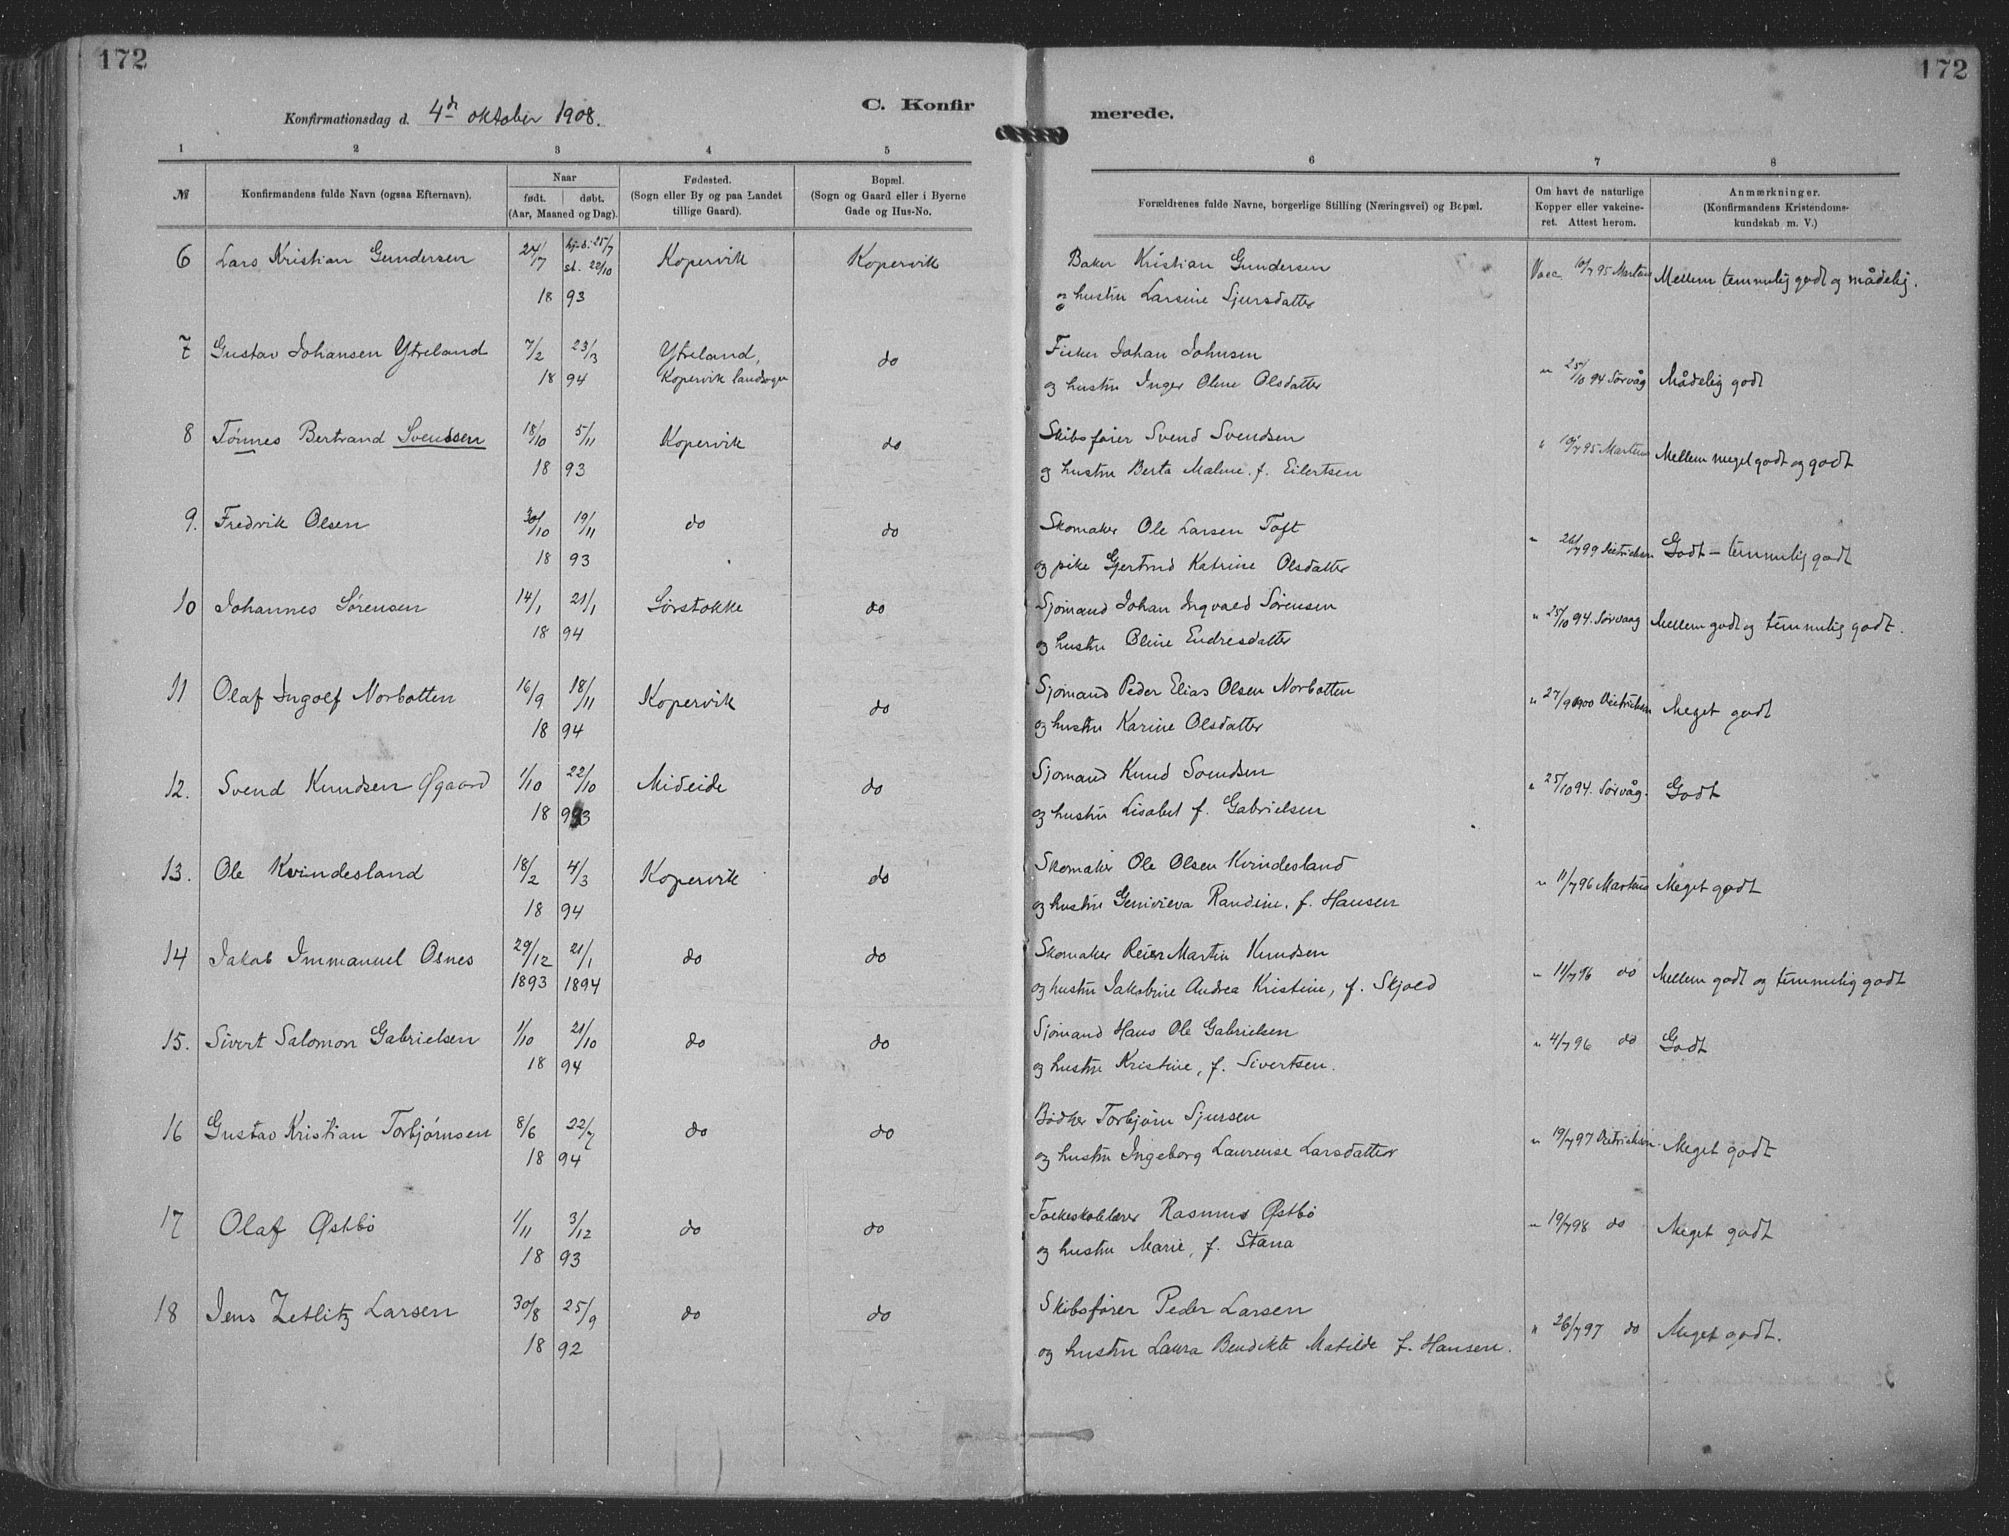 172
172
Konfirmationsdag d. 4de oktober 1908.
C. Konfir
merede.
1 2 3 4 5 6 7 8
№
Konfirmandens fulde Navn (ogsaa Efternavn).
Naar
født. døbt.
(Aar, Maaned og Dag).
Fødested.
(Sogn eller By og paa Landet
tillige Gaard).
Bopæl.
(Sogn og Gaard eller i Byerne
Gade og Hus-No.
Forældrenes fulde Navne, borgerlige Stilling (Næringsvei) og Bopæl.
Om havt de naturlige
Kopper eller vakcine-
ret. Attest herom.
Anmærkninger.
(Konfirmandens Kristendoms-
kundskab m. V.)
6 Lars Kristian Gundersen hj.d. 25/7 st. 22/10 Kopervik Kopervik Baker Kristian Gundersen Vacc 10/7 95 Martens Mellem temmelig godt og mådelig.
18 93 og hustru Larsine Sjursdatter
7 Gustav Johansen Ytreland 7/2 23/3 Ytreland, do Fisker Johan Johnsen " 25/10 94 Sørvåg Mådelig godt
18 94 Kopervik landsogn og hustru Inger Oline Olsdatter
8 Tønnes Bertrand Svendsen 18/10 5/11 Kopervik do Skibsfører Svend Svendsen " 10/7 95 Martens Mellem meget godt og godt
18 93 og hustru Berta Maline f. Eilertsen
9. Fredrik Olsen 30/10 19/11 do do Skomaker Ole Larsen Toft " 26/7 99 Dietrichson Godt - temmelig godt
18 93 og pike Gjertrud Katrine Olsdatter
10 Johannes Sørensen 14/1 21/1 Sørstokke do Sjømand Johan Ingvald Sørensen " 25/10 94. Sørvaag Mellem godt og temmelig godt.
18 94 og hustru Oline Endresdatter
11 Olaf Ingolf Norbotten 16/9 18/11 Kopervik do Sjømand Peder Elias Olsen Norbotten " 27/9 1900 Dietrichson Meget godt
18 94 og hustru Karine Olsdatter
12. Svend Knudsen Øgaard 1/10 22/10 Mideide do Sjømand Knud Svendsen " 25/10 94. Sørvåg. Godt
18 93 og hustru Lisabet f. Gabrielsen
13. Ole Kvindesland 18/2 4/3 Kopervik do Skomaker Ole Olsen Kvindesland " 11/7 96 Martens Meget godt
18 94 og hustru Genivieva Randine, f. Hansen
14 Jakob Immanuel Osnes 29/12 21/1 do do Skomaker Reier Martin Knudsen " 11/7 96 do Mellem godt og temmelig godt
1893 1894 og hustru Jakobine Andrea Kristine, f. Skjold
15. Sivert Salomon Gabrielsen 1/10 21/10 do do Sjømand Hans Ole Gabrielsen " 4/7 96 do Godt
18 94 og hustru Kristine, f. Sivertsen.
16 Gustav Kristian Torbjørnsen 8/6 22/7 do do Bødker Torbjørn Sjursen " 19/7 97 Dietrichson. Meget godt
18 94 og hustru Ingeborg Laurense Larsdatter
17 Olaf Østbö 1/11 3/12 do do Folkeskolelærer Rasmus Østbö " 19/7 98 do Meget godt
18 93 og hustru Marie, f. Stana
18 Jens Zetlitz Larsen 30/8 25/9 do do Skibsfører Peder Larsen " 26/7 97 do Meget godt.
18 92 og hustru Laura Bendikte Matilde f. Hansen.